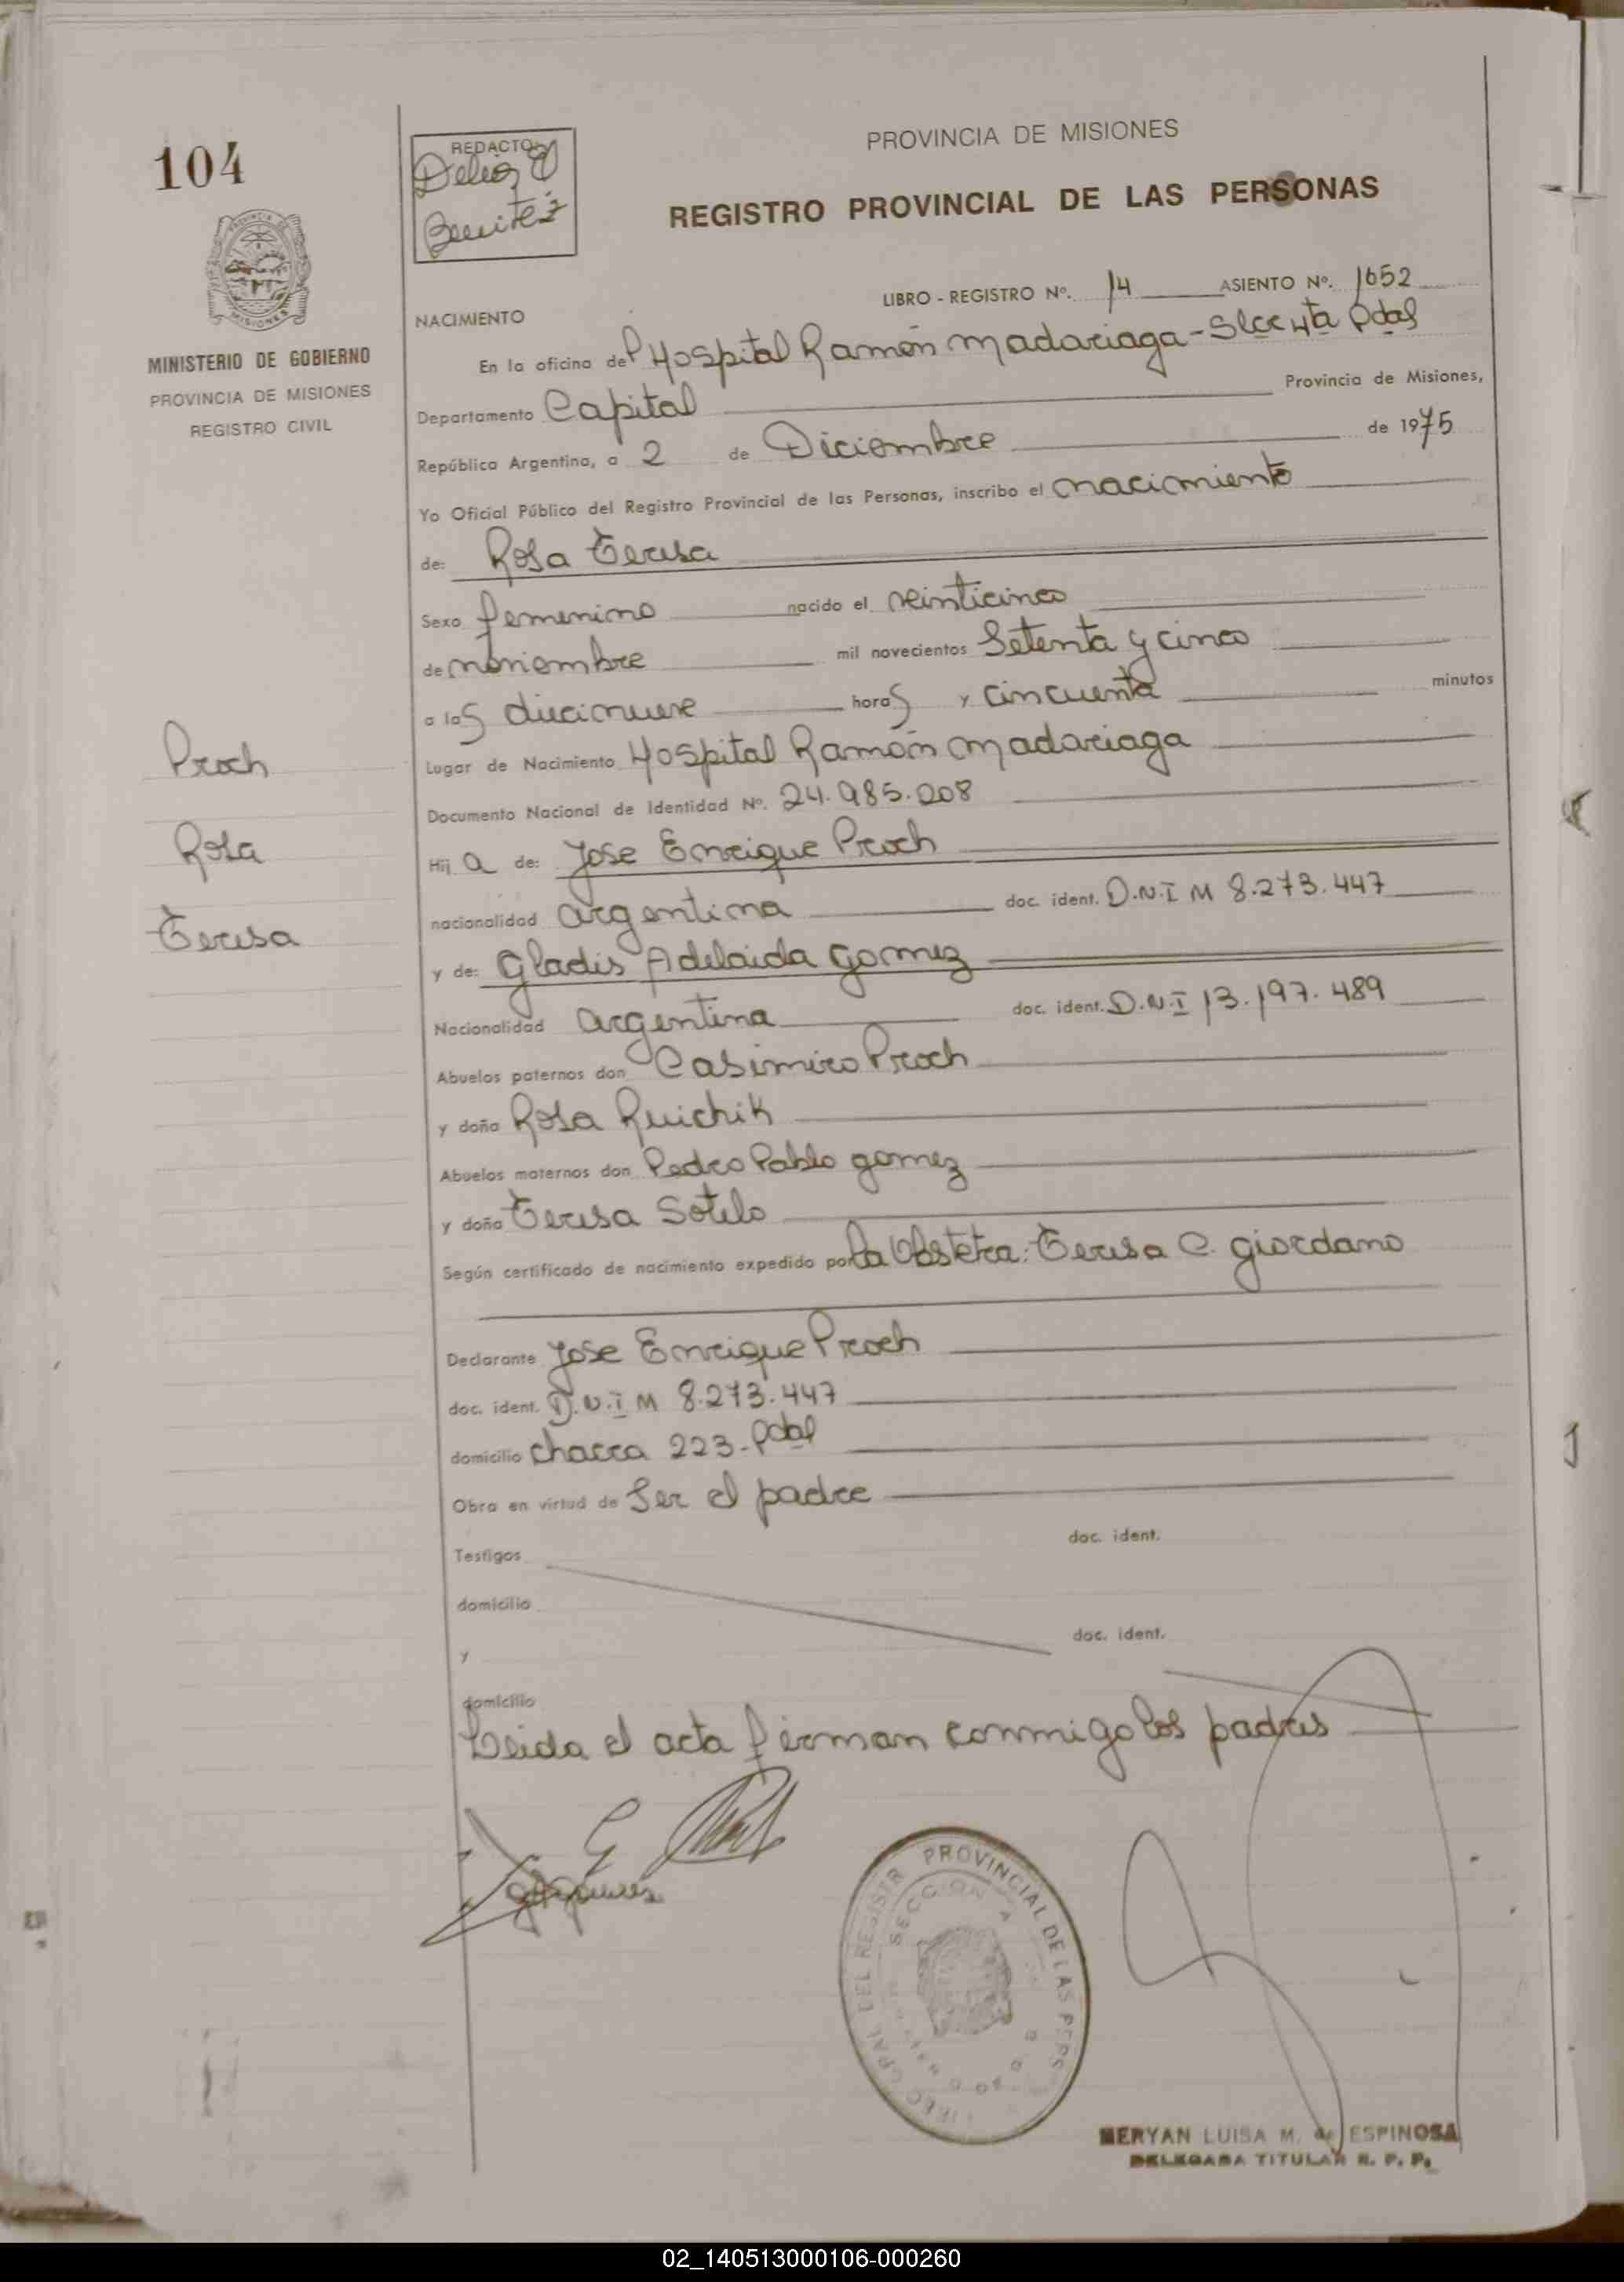 104
MINISTERIO DE GOBIERNO
PROVINCIA DE MISIONES
REGISTRO CIVIL
REDACTO:
Benitez
PROVINCIA DE MISIONES
REGISTRO PROVINCIAL DE LAS PERSONAS
LIBRO - REGISTRO Nº. 14 ASIENTO Nº. 1652
NACIMIENTO
En la oficina del Hospital Ramón Madariaga - Sicc 4ta Pdas
Departamento Capital Provincia de Misiones,
República Argentina, a 2 de Diciembre de 1975
Yo Oficial Público del Registro Provincial de las Personas, inscribo el nacimiento
de: Rosa Teresa
Sexo femenino nacido el veinticinco
de noviembre mil novecientos Setenta y cinco
a las diecinueve horas y cincuenta minutos
Lugar de Nacimiento Hospital Ramón Madariaga
Documento Nacional de Identidad Nº. 24.985.208
Hij a de: Jose Enrique Proch
nacionalidad argentina doc. ident. D.N.I M 8.273.447
y de: Gladis Adelaida Gomez
Nacionalidad argentina doc. ident. D.N.I 13.197.489
Abuelos paternos don Casimiro Proch
y doña Rosa Ruichik
Abuelos maternos don Pedro Pablo gomez
y doña Teresa Sotelo
Según certificado de nacimiento expedido por la Obstetra: Teresa C. giordano
Declarante Jose Enrique Proch
doc. ident. D.N.I M 8.273.447
domicilio chacra 223 - Pdas
Obra en virtud de Ser el padre
Testigos doc. ident.
domicilio
y doc. ident.
domicilio
Leida el acta firman conmigo los padres
Proch
Rosa
Teresa
PROVINCIAL DE LAS PERS
DEL REGISTR
SECCION
MERYAN LUISA M. de ESPINOSA
DELEGADA TITULAR R. P. P.
02_140513000106-000260